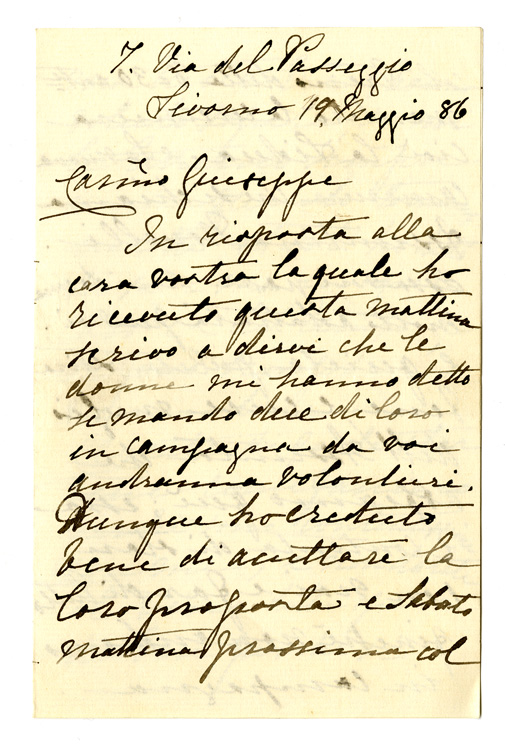 7. Via del Passeggio
Livorno 19 Maggio 86
Carmo Giuseppe
In risposta alla
cara vostra la quale ho
ricevuto questa mattina
scrivo a dirvi che le
donne mi hanno detto
se mando due di loro
in campagna da voi
andranna volontieri.
Dunque ho creduto
bene di accettare la
loro proposta e Sabato
mattina prossima col